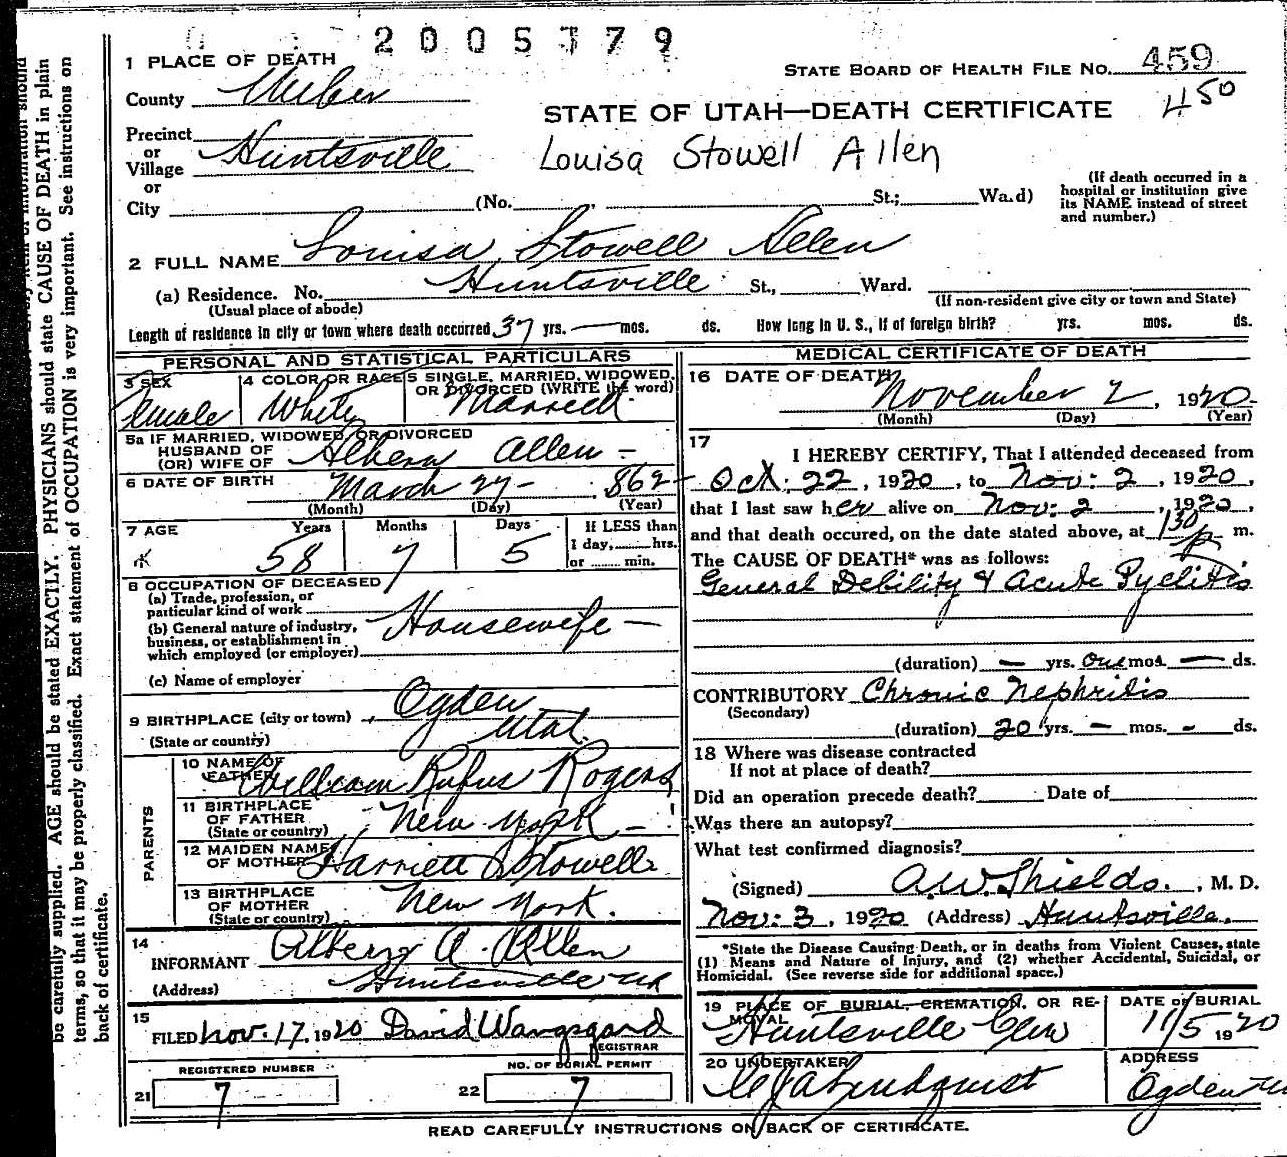 2005379
1 PLACE OF DEATH
County Weber
STATE BOARD OF HEALTH FILE No. 459
450
STATE OF UTAH—DEATH CERTIFICATE
Precinct
or
Village Huntsville
or
City
Louisa Stowell Allen
(No. , St.; Ward)
(If death occurred in a
hospital or institution give
its NAME instead of street
and number.)
2 FULL NAME Louisa Stowell Allen
(a) Residence. No. Huntsville St., Ward.
(Usual place of abode)
(If non-resident give city or town and State)
Length of residence in city or town where death occurred 37 yrs. — mos. ds. How long in U. S., if of foreign birth? yrs. mos. ds.
PERSONAL AND STATISTICAL PARTICULARS
3 SEX
Female
4 COLOR OR RACE
White
5 SINGLE, MARRIED, WIDOWED,
OR DIVORCED (WRITE the word)
Married
5a IF MARRIED, WIDOWED, OR DIVORCED
HUSBAND OF
(OR) WIFE OF Albern Allen —
6 DATE OF BIRTH
March 27— 1862—
(Month) (Day) (Year)
7 AGE
Years Months Days
58 7 5
If LESS than
1 day, hrs.
or min.
8 OCCUPATION OF DECEASED
(a) Trade, profession, or
particular kind of work
Housewife —
(b) General nature of industry,
business, or establishment in
which employed (or employer)
(c) Name of employer
9 BIRTHPLACE (city or town) , Ogden
(State or country) Utah
PARENTS
10 NAME OF
FATHER William Rufus Rogers
11 BIRTHPLACE
OF FATHER New York —
(State or country)
12 MAIDEN NAME
OF MOTHER Harriett Stowell
13 BIRTHPLACE
OF MOTHER New York.
(State or country)
14
INFORMANT Albern A. Allen
(Address) Huntsville Ut
15
FILED Nov. 17, 1920 David Wangsgard
REGISTRAR
REGISTERED NUMBER
21 7
NO. OF BURIAL PERMIT
22 7
MEDICAL CERTIFICATE OF DEATH
16 DATE OF DEATH
November 2, 1920
(Month) (Day) (Year)
17
I HEREBY CERTIFY, That I attended deceased from
Oct. 22, 1920, to Nov: 2, 1920,
that I last saw her alive on Nov: 2, 1920,
and that death occured, on the date stated above, at 1 30 p m.
The CAUSE OF DEATH* was as follows:
General Debility & Acute Pyelitis
(duration) — yrs. one mos. — ds.
CONTRIBUTORY Chronic Nephritis
(Secondary)
(duration) 20 yrs. — mos. - ds.
18 Where was disease contracted
If not at place of death?
Did an operation precede death? Date of
Was there an autopsy?
What test confirmed diagnosis?
(Signed) A.W. Shields. , M. D.
Nov: 3, 1920 (Address) Huntsville.
*State the Disease Causing Death, or in deaths from Violent Causes, state
(1) Means and Nature of Injury, and (2) whether Accidental, Suicidal, or
Homicidal. (See reverse side for additional space.)
19 PLACE OF BURIAL, CREMATION, OR RE-
MOVAL
Huntsville Cem
DATE of BURIAL
11/5 1920
20 UNDERTAKER
Lindquist
ADDRESS
Ogden
READ CAREFULLY INSTRUCTIONS ON BACK OF CERTIFICATE.
be carefully supplied. AGE should be stated EXACTLY. PHYSICIANS should state CAUSE OF DEATH in plain
terms, so that it may be properly classified. Exact statement of OCCUPATION is very important. See instructions on
back of certificate.